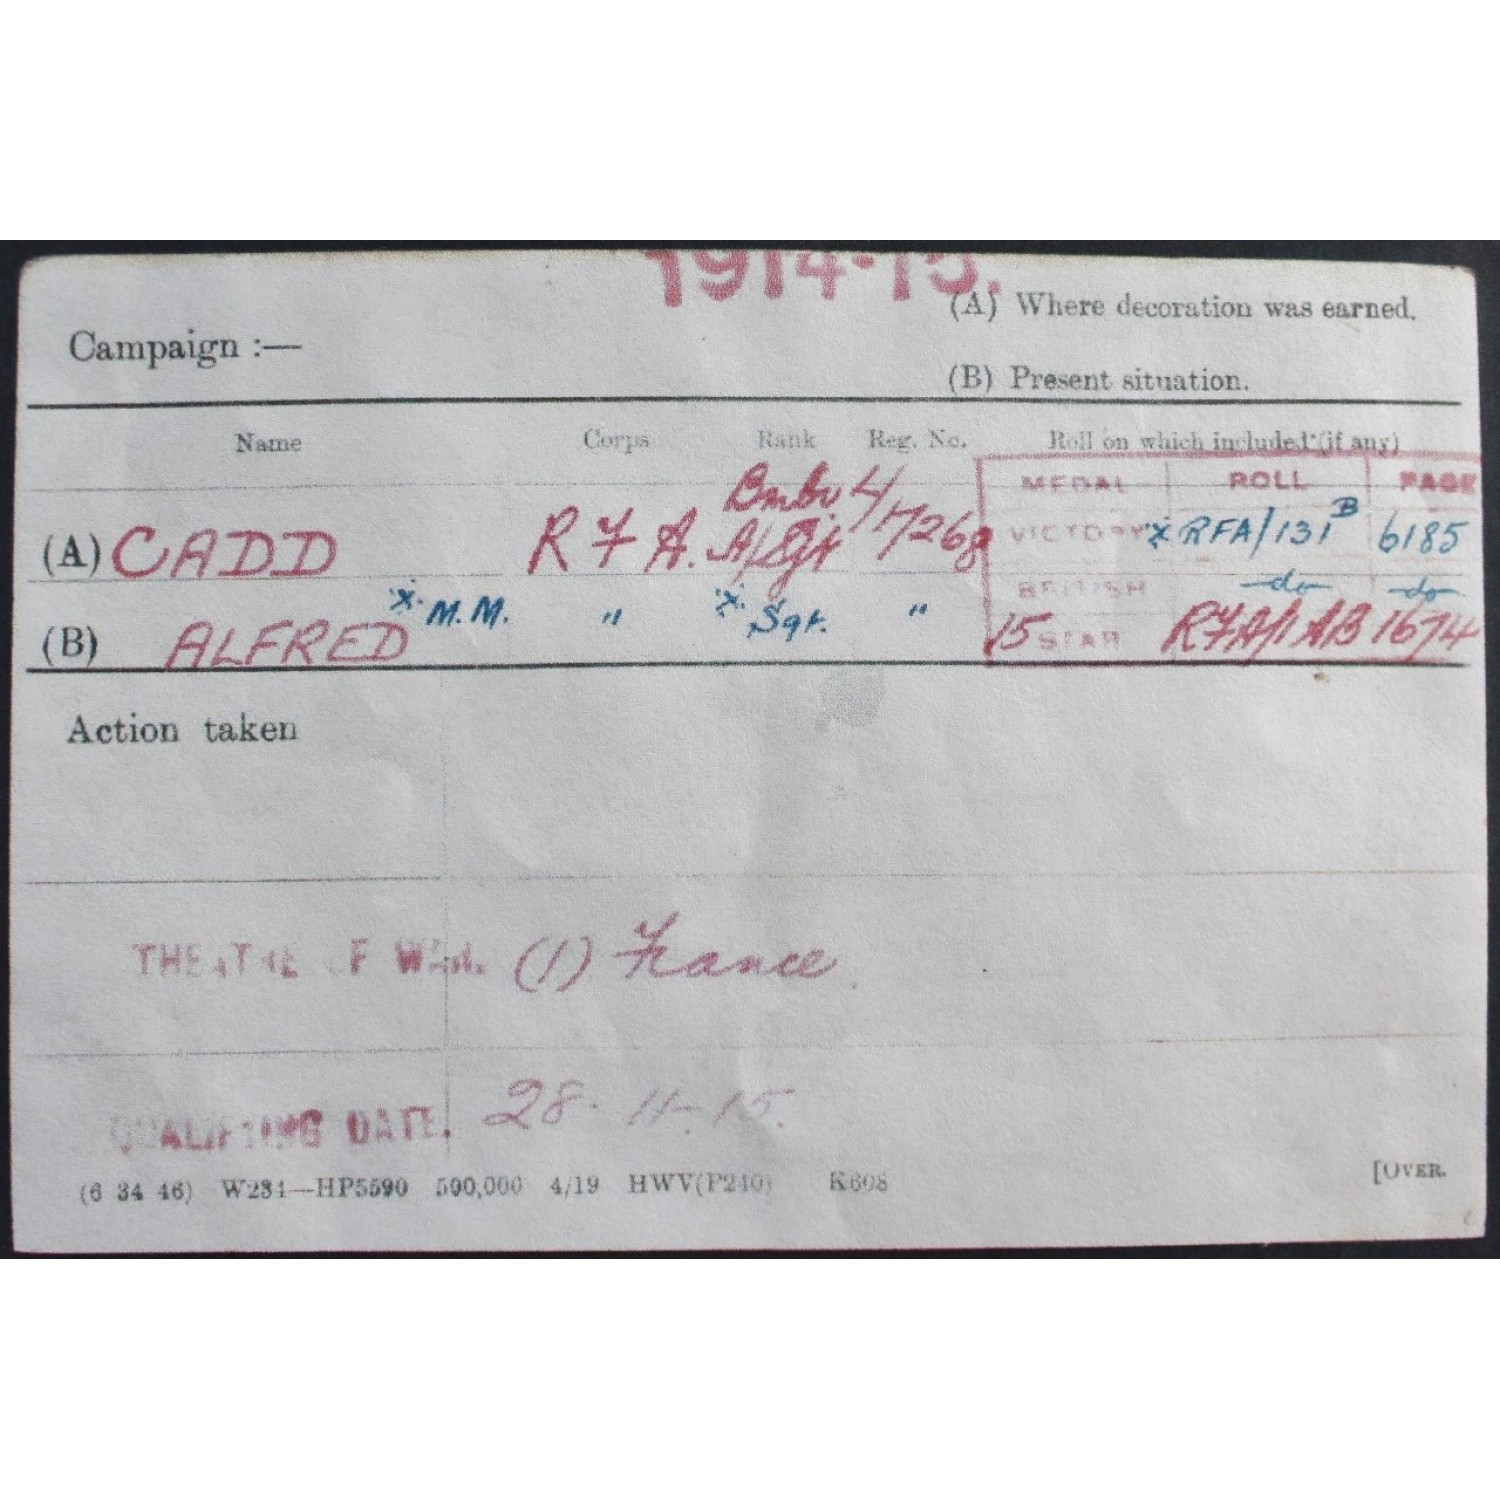 1914-15.
(A) Where decoration was earned.
Campaign :—
(B) Present situation.
Name Corps Rank Reg. No. Roll on which included (if any)
MEDAL ROLL PAGE
Bmbr 4/
(A) CADD R F A. A/Sgt 7268 VICTORY x RFA/131B 6185
BRITISH do do
(B) ALFRED x M.M. " x Sgt. " 15 STAR RFA/1AB 1674
Action taken
THEATRE OF WAR. (1) France.
QUALIFYING DATE. 28-11-15.
(6 34 46) W234—HP5590 500,000 4/19 HWV(P240) K608 [OVER.